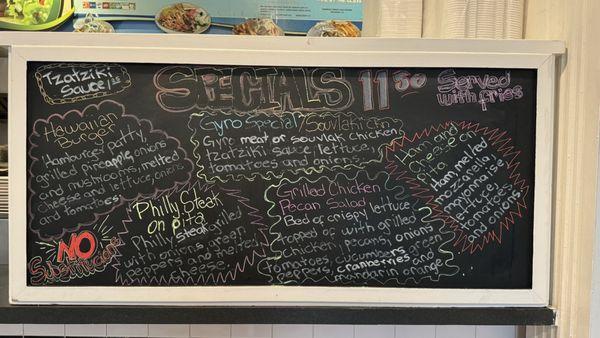 Tzatziki
Sauce 1.25
SPECIALS 11.50
Served
with fries
Hawaiian
Burger
Hamburger patty,
grilled pineapple, onions
and mushrooms, melted
cheese and lettuce, onions
and tomatoes
Gyro Special / Souvlaki
Gyro meat or souvlaki chicken
tzatziki sauce, lettuce,
tomatoes and onions
Ham and
cheese on
pita
Ham, melted
mozzarella,
mayonnaise,
lettuce,
tomatoes
and onions
Philly Steak
on pita
Philly steak grilled
with onions, green
peppers and melted
cheese
Grilled Chicken
Pecan Salad
Bed of crispy lettuce
topped of with grilled
chicken, pecans, onions
tomatoes, cucumbers, green
peppers, cranberries and
mandarin orange
NO
Substitutions